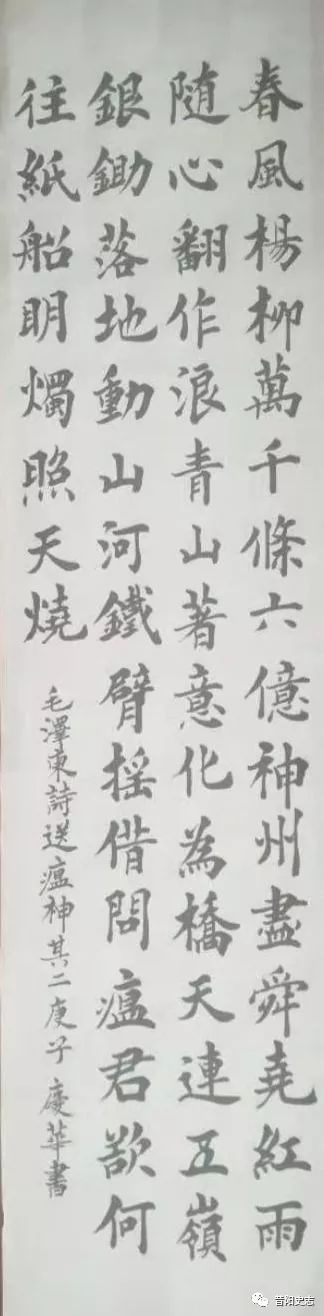 春風楊柳萬千條六億神州盡舜堯紅雨
随心翻作浪青山著意化為橋天連五嶺
銀鋤落地動山河鐵臂摇借問瘟君欲何
往紙船明燭照天燒
毛澤東詩送瘟神其二庚子慶華書
昔阳史志